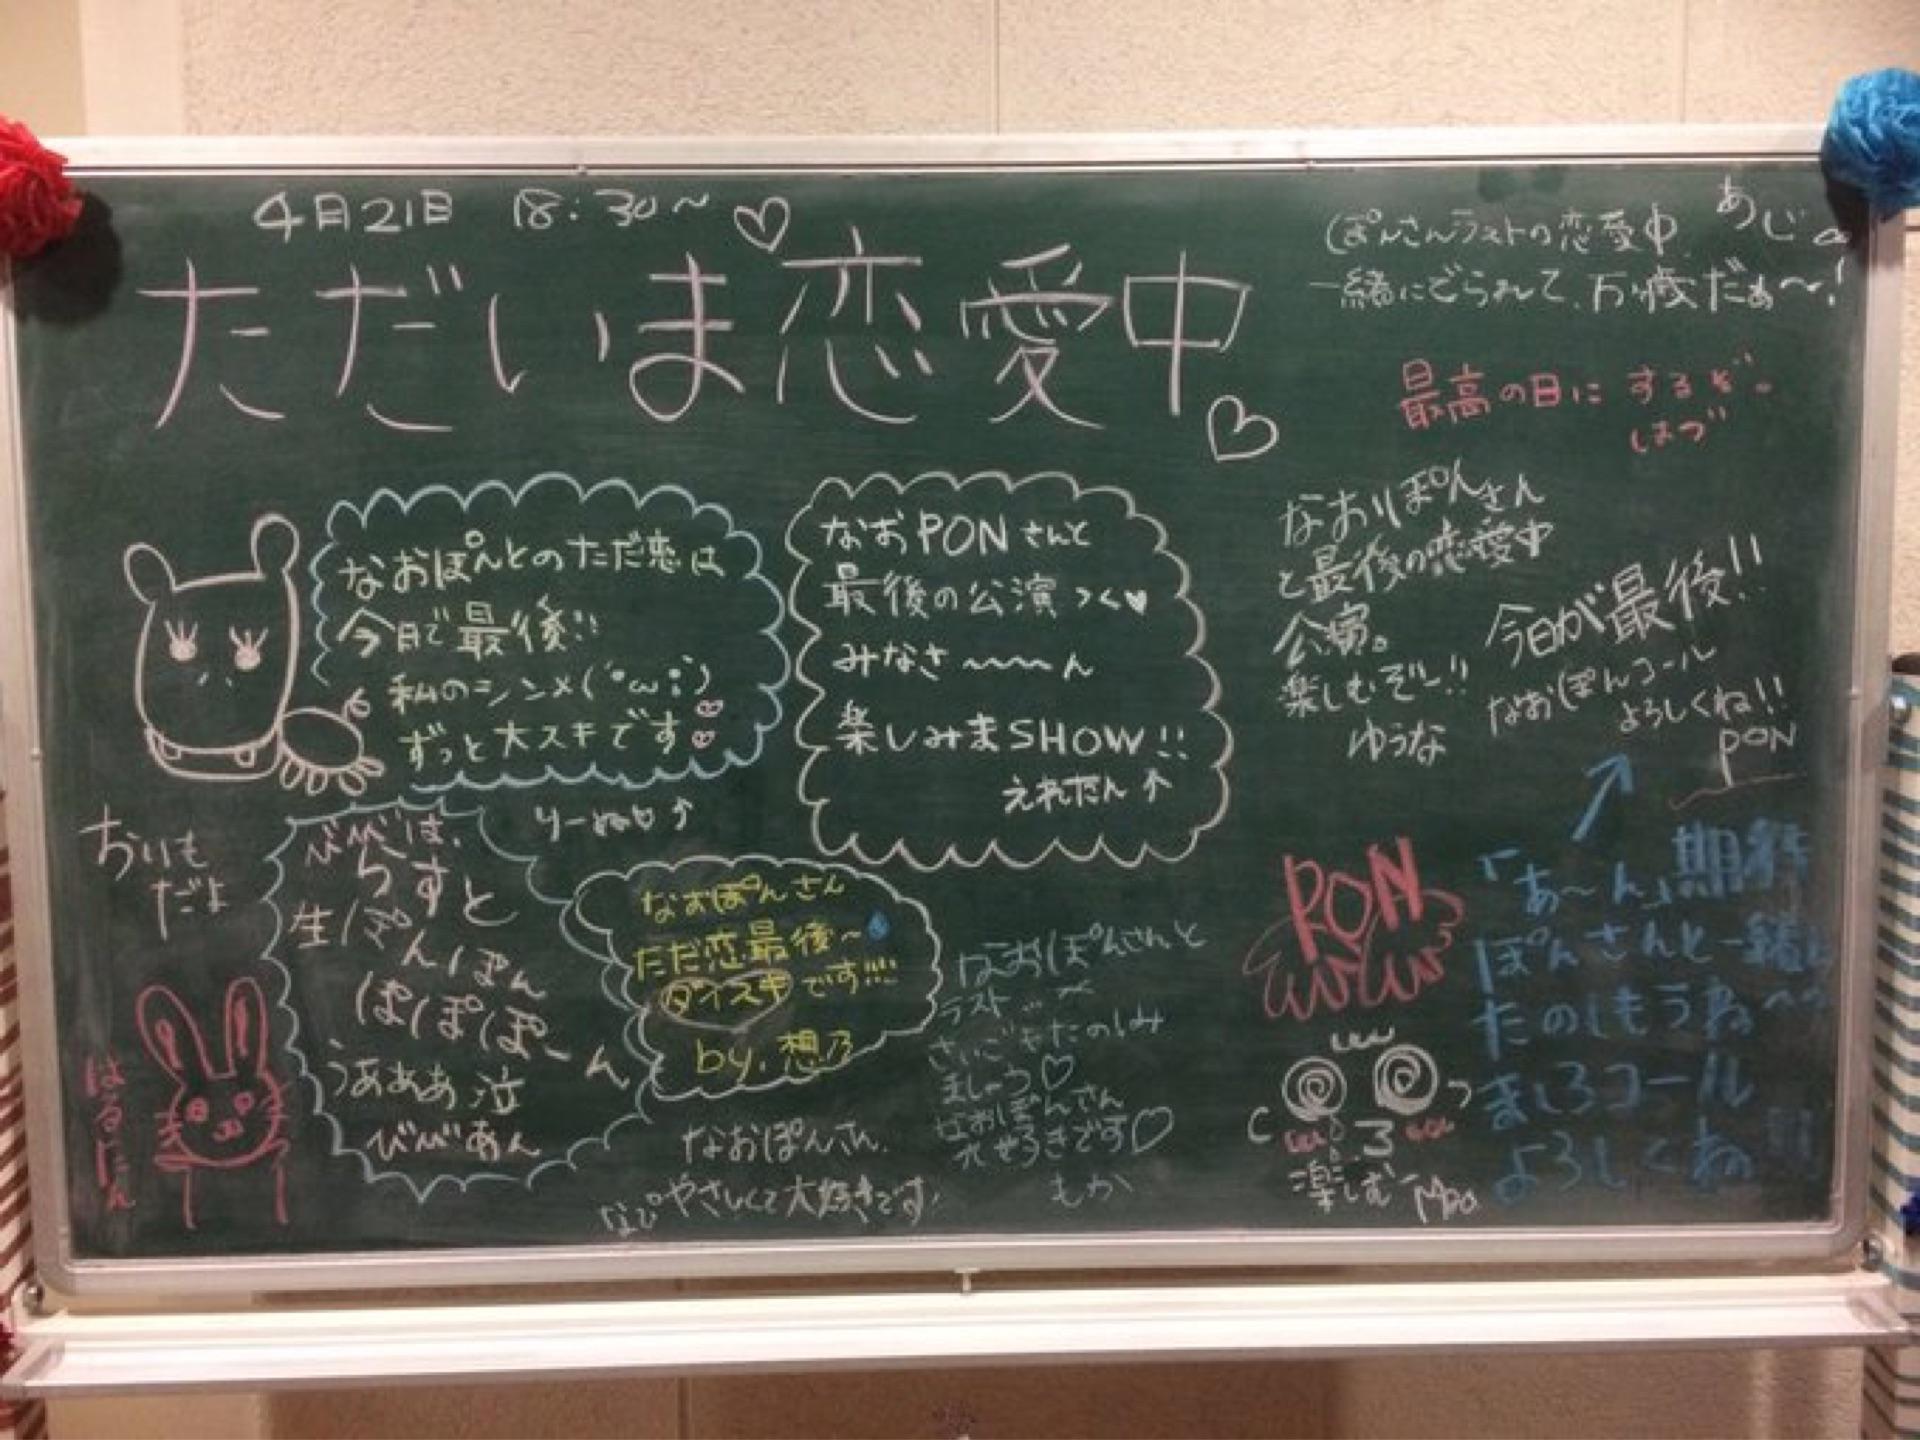 4月21日 18:30~
ただいま恋愛中
ぽんさんラストの恋愛中
一緒にでられて、万歳だぁ〜!
最高の日にするぞー
はづ
なおぽんとのただ恋は
今日で最後!!
私のシンメ(´・ω・`)
ずっと大スキです
なおPONさんと
最後の公演つく♥
みなさ〜〜〜ん
楽しみまSHOW!!
えれたん↑
なおぽんさん
と最後の恋愛中
公演。
楽しむぞー!!
ゆうな
今日が最後!!
なおぽんコール
よろしくね!!
PON
おいも
だよ
びびは、
らすと
生ぽんぽん
ぽぽぽーん
うあああ泣
びびあん
なおぽんさん
ただ恋最後〜
ダイスキです!!!
by.想乃
なおぽんさんと
ラスト
さいごまでたのしみ
ましょう♡
なおぽんさん
です♡
もか
PON
「あ〜ん」期待
ぽんさんと一緒に
たのしもうね〜
ましろコール
よろしくね!!!
楽しむー
Moo
はるたん
なおぽんさん
やさしくて大好きです!